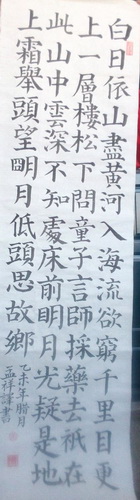 白日依山盡黃河入海流欲窮千里目更
上一層樓松下問童子言師採藥去祇在
此山中雲深不知處床前明月光疑是地
上霜舉頭望明月低頭思故鄉
乙未年腊月
孟祥譯書